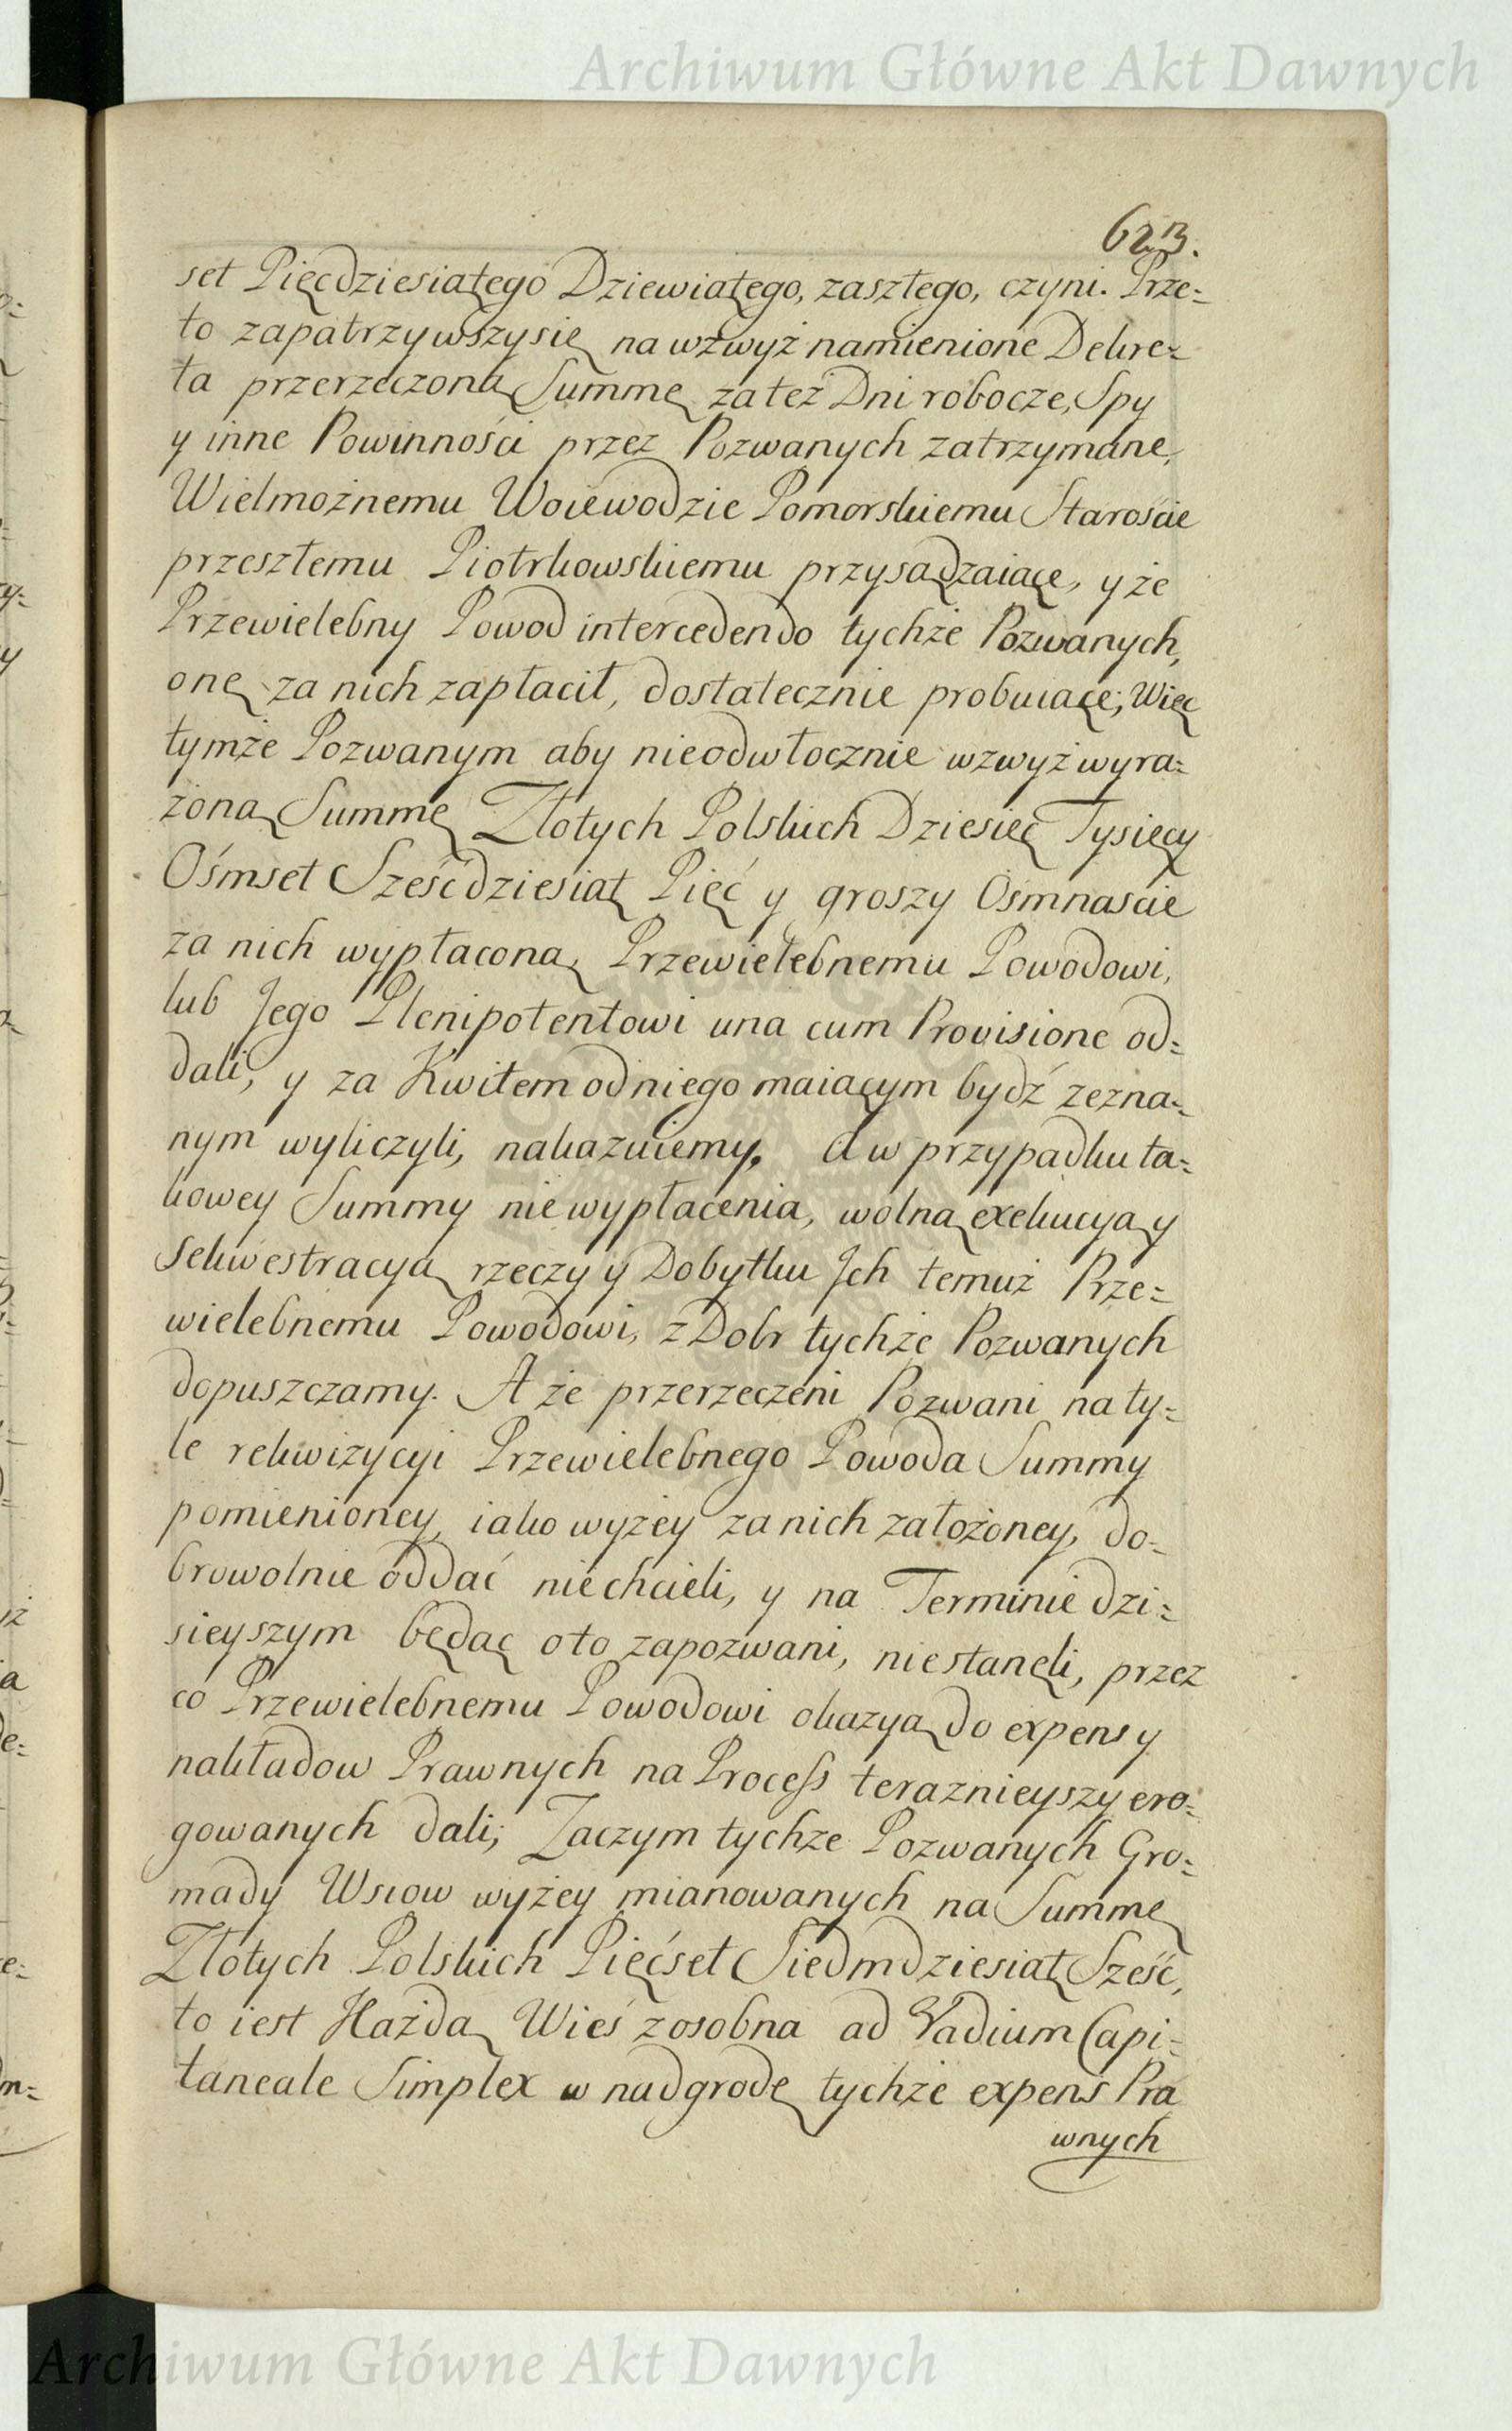 Archiwum Główne Akt Dawnych
623.
set Pięcdziesiątego Dziewiątego, zaszłego, czyni. Prze=
to zapatrzywszysię na wzwyż namienione Dekre=
ta przerzeczoną Summę za też Dni robocze, Spy
y inne Powinności przez Pozwanych zatrzymane,
Wielmożnemu Woiewodzie Pomorskiemu Staroście
przeszłemu Piotrkowskiemu przysądzaiące, y że
Przewielebny Powod intercedendo tychże Pozwanych,
onę za nich zapłacił, dostatecznie probuiące; Więc
tymże Pozwanym aby nieodwłocznie wzwyż wyra=
żoną Summę Złotych Polskich Dziesięć Tysięcy
Ośmset Sześćdziesiąt Pięć y groszy Ośmnaście
za nich wypłaconą, Przewielebnemu Powodowi,
lub Jego Plenipotentowi una cum Provisione od=
dali, y za Kwitem od niego maiącym bydź zezna=
nym wyliczyli, nakazuiemy. A w przypadku ta=
kowey Summy niewypłacenia, wolną exekucyą y
Sekwestracyą rzeczy y Dobytku Jch temuż Prze=
wielebnemu Powodowi, z Dobr tychże Pozwanych
dopuszczamy. A że przerzeczeni Pozwani na ty=
le rekwizycyi Przewielebnego Powoda Summy
pomienioney, iako wyżey za nich założoney, do=
browolnie oddać niechcieli, y na Terminie dzi=
sieyszym będąc oto zapozwani, niestanęli, przez
co Przewielebnemu Powodowi okazyą do expens y
nakładow Prawnych na Process teraznieyszy ero=
gowanych dali; Zaczym tychże Pozwanych Gro=
mady Wsiow wyżey mianowanych na Summę
Złotych Polskich Pięćset Siedmdziesiąt Sześć,
to iest Każdą Wieś zosobna ad Vadium Capi=
taneale Simplex w nadgrodę tychże expens Pra
wnych
Archiwum Główne Akt Dawnych